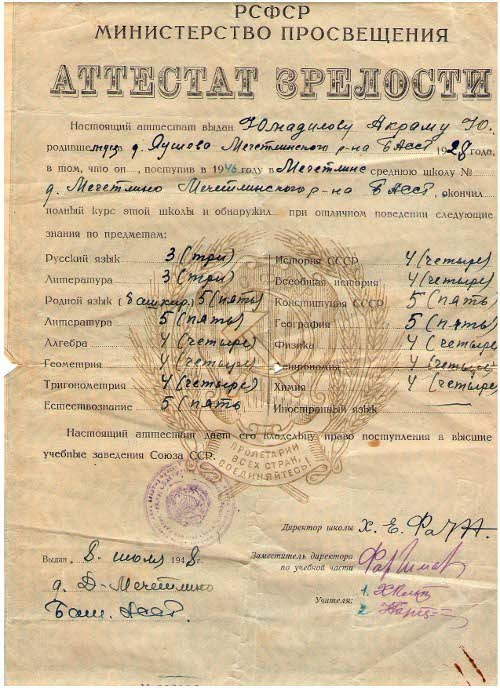 РСФСР
МИНИСТЕРСТВО ПРОСВЕЩЕНИЯ
АТТЕСТАТ ЗРЕЛОСТИ
Настоящий аттестат выдан Юмадилову Акраму Ю.
родившемуся д. Яушево Мечетлинского р-на БАССР 1928 года,
в том, что он, поступив в 1946 году в Мечетлинс среднюю школу №
д. Мечетлино Мечетлинского р-на БАССР, окончил
полный курс этой школы и обнаружил при отличном поведении следующие
знания по предметам:
Русский язык 3 (три)
Литература 3 (три)
Родной язык (башкир.) 5 (пять)
Литература 5 (пять)
Алгебра 4 (четыре)
Геометрия 4 (четыре)
Тригонометрия 4 (четыре)
Естествознание 5 (пять
История СССР 4 (четыре)
Всеобщая история 4 (четыре)
Конституция СССР 5 (пять
География 5 (пять)
Физика 4 (четыре
Астрономия 4 (четыре)
Химия 4 (четыре
Иностранный язык
ПРОЛЕТАРИИ
ВСЕХ СТРАН,
СОЕДИНЯЙТЕСЬ!
Настоящий аттестат дает его владельцу право поступления в высшие
учебные заведения Союза ССР.
Директор школы
Выдан 8 июля 1948 г.
д. Д-Мечетлино
Баш. АССР.
Заместитель директора
по учебной части
Учителя:
1.
2.